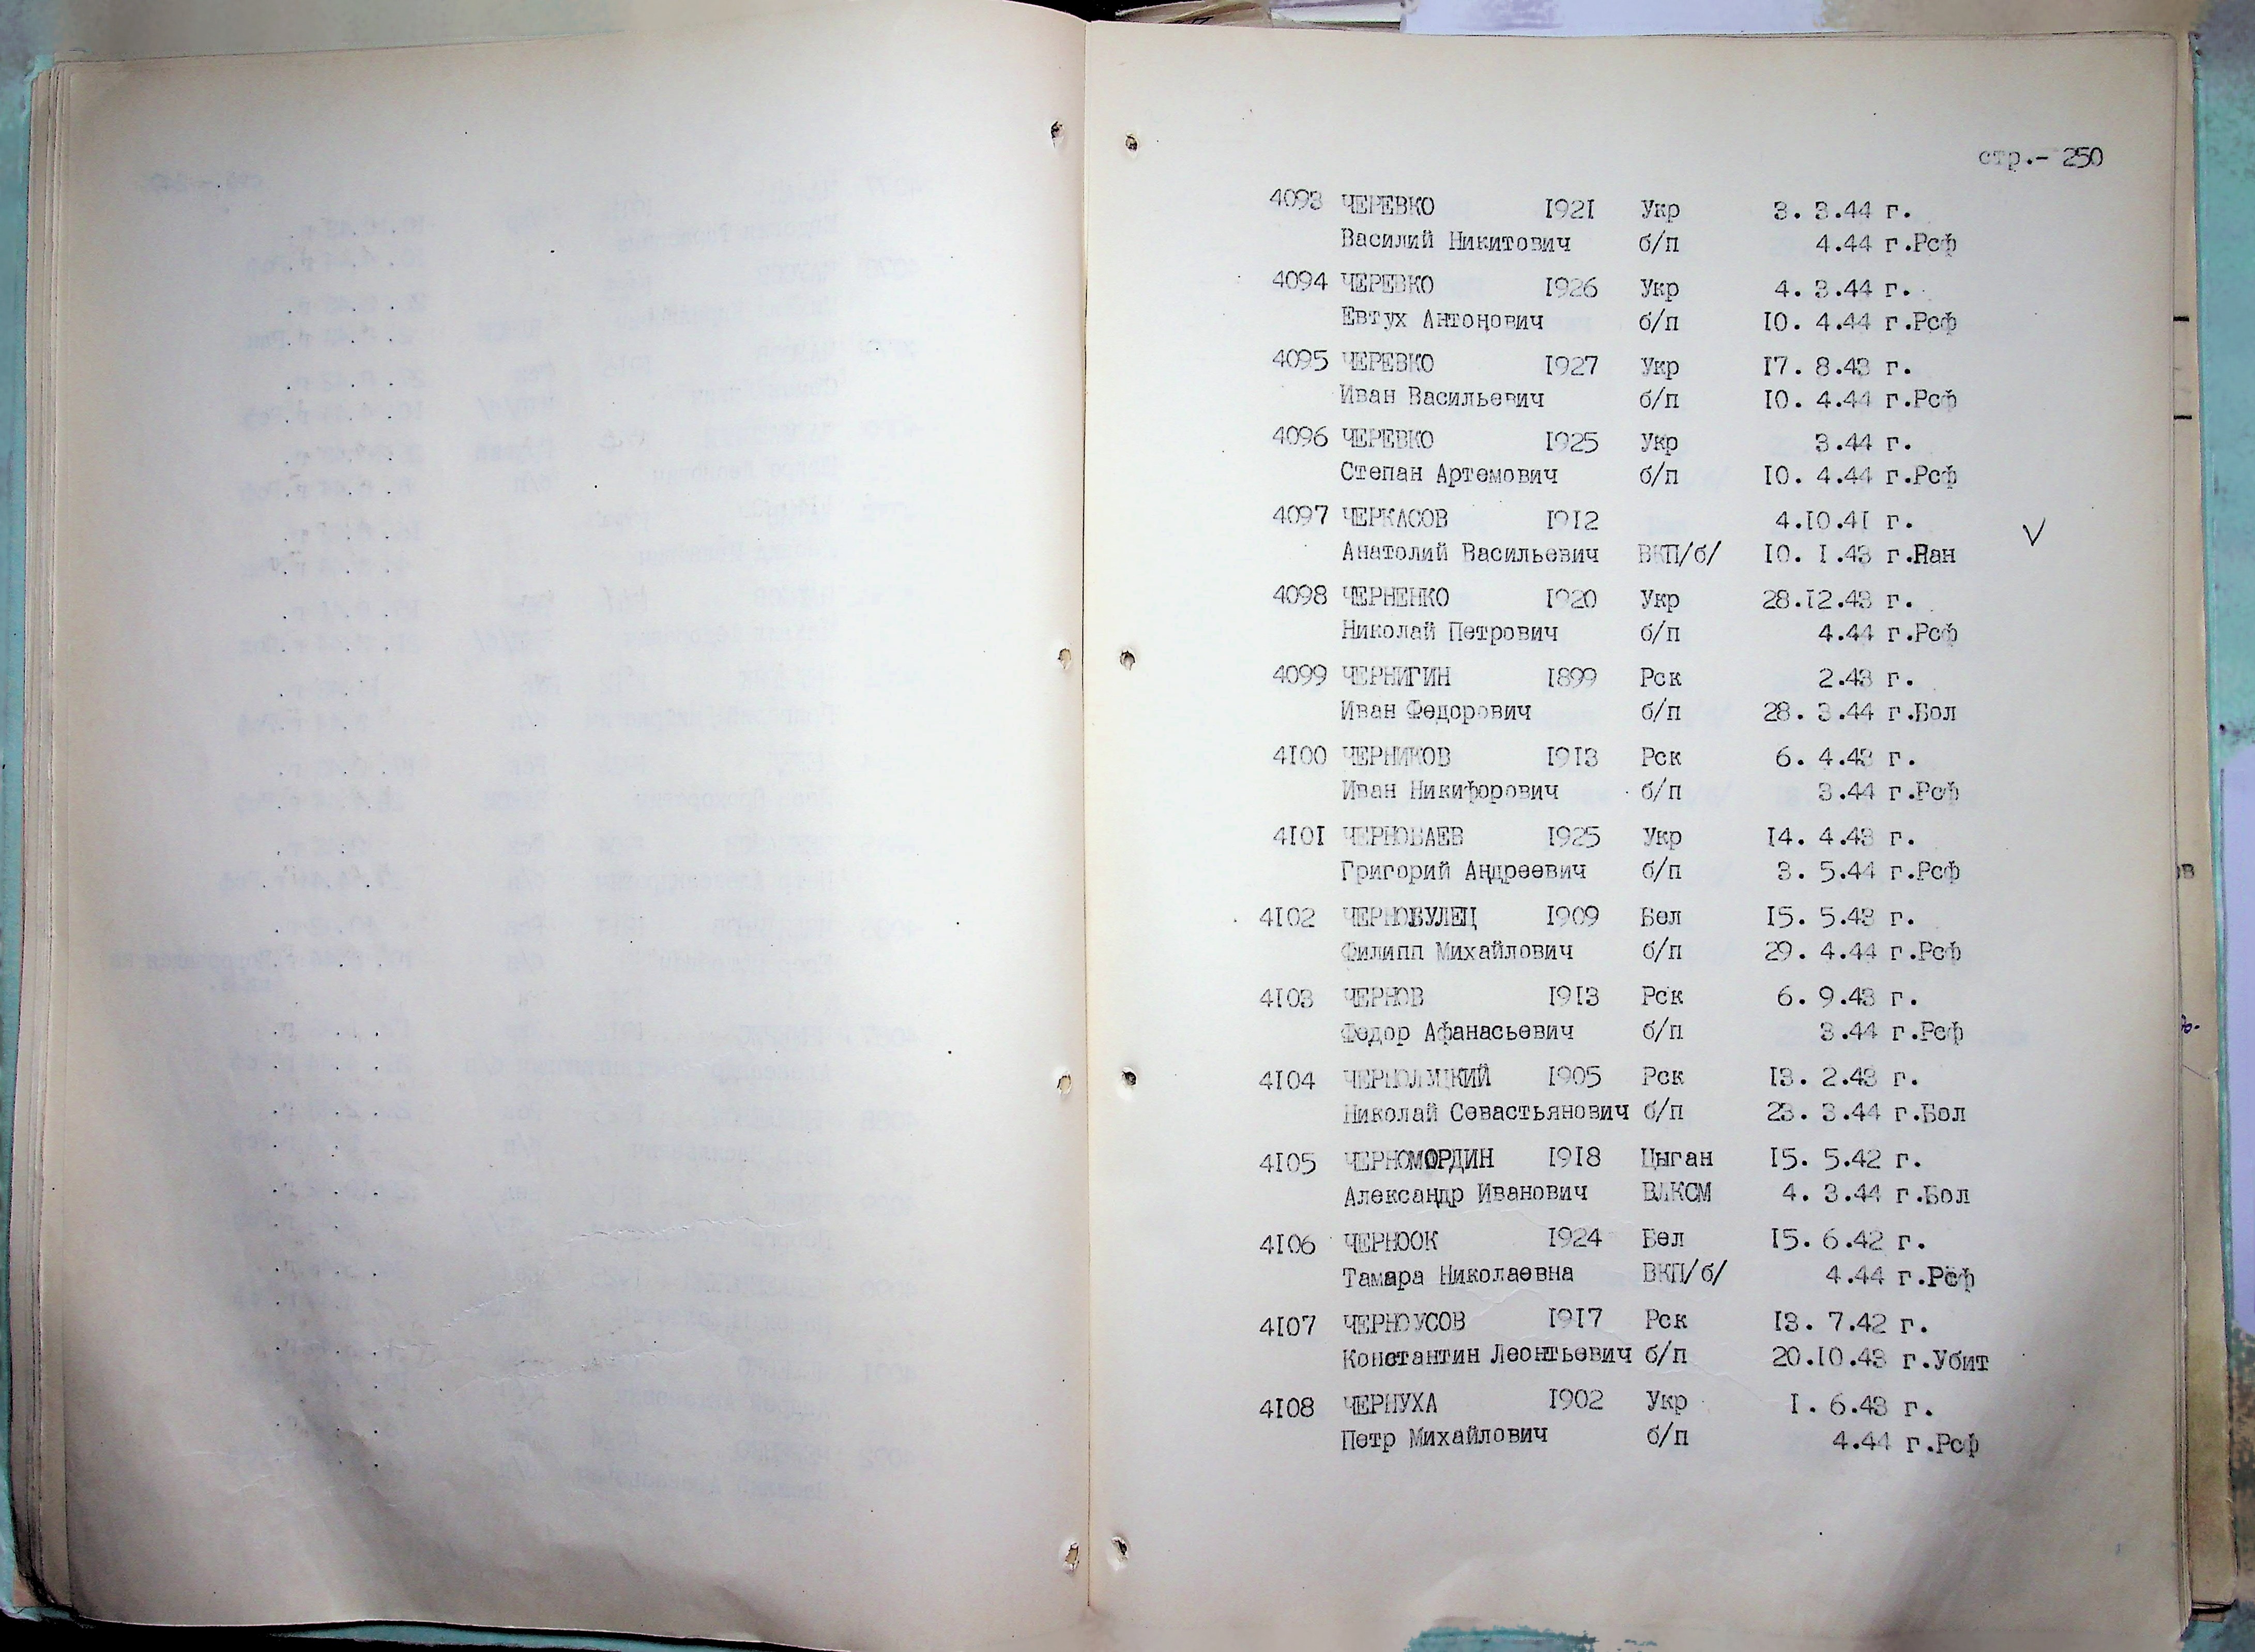 стр.- 250
4093 ЧЕРЕВКО 1921 Укр 3. 3.44 г.
Василий Никитович б/п 4.44 г.Рсф
4094 ЧЕРЕВКО 1926 Укр 4. 3.44 г.
Евтух Антонович б/п 10. 4.44 г.Рсф
4095 ЧЕРЕВКО 1927 Укр 17. 8.43 г.
Иван Васильевич б/п 10. 4.44 г.Рсф
4096 ЧЕРЕВКО 1925 Укр 3.44 г.
Степан Артемович б/п 10. 4.44 г.Рсф
4097 ЧЕРКАСОВ 1912 4.10.41 г.
Анатолий Васильевич ВКП/б/ 10. 1.43 г.Нан
4098 ЧЕРНЕНКО 1920 Укр 28.12.43 г.
Николай Петрович б/п 4.44 г.Рсф
4099 ЧЕРНИГИН 1899 Рск 2.43 г.
Иван Федорович б/п 28. 3.44 г.Бол
4100 ЧЕРНИКОВ 1913 Рск 6. 4.43 г.
Иван Никифорович б/п 3.44 г.Рсф
4101 ЧЕРНОБАЕВ 1925 Укр 14. 4.43 г.
Григорий Андреевич б/п 3. 5.44 г.Рсф
4102 ЧЕРНОБУЛЕЦ 1909 Бел 15. 5.43 г.
Филипп Михайлович б/п 29. 4.44 г.Рсф
4103 ЧЕРНОВ 1913 Рск 6. 9.43 г.
Федор Афанасьевич б/п 3.44 г.Рсф
4104 1905 Рск 13. 2.43 г.
Николай Севастьянович б/п 23. 3.44 г.Бол
4105 ЧЕРНОМОРДИН 1918 Цыган 15. 5.42 г.
Александр Иванович ВЛКСМ 4. 3.44 г.Бол
4106 ЧЕРНООК 1924 Бел 15. 6.42 г.
Тамара Николаевна ВКП/б/ 4.44 г.Рсф
4107 ЧЕРНОУСОВ 1917 Рск 13. 7.42 г.
Константин Леонтьевич б/п 20.10.43 г.Убит
4108 ЧЕРНУХА 1902 Укр 1. 6.43 г.
Петр Михайлович б/п 4.44 г.Рсф